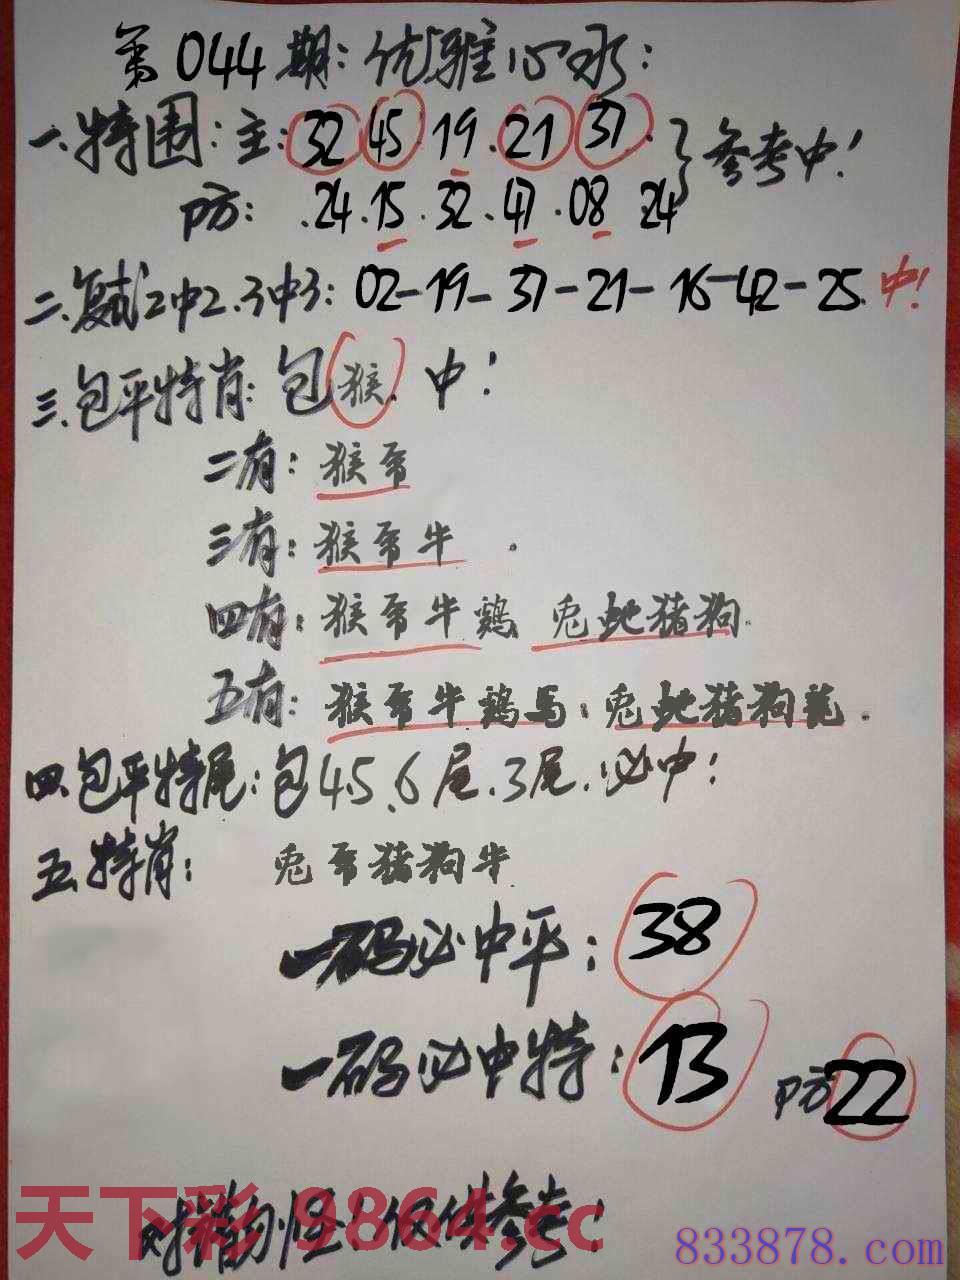 第044期:优雅心水:
一.特围:主:32 45·19·21 37· }参考中!
防: ·24·15·32·47·08 24
二.复试2中2.3中3:02-19-37-21-16-42-25.中!
三.包平特肖:包猴.中!
二有:猴
三有:猴 牛 .
四有:猴 牛鷄 兔蛇猪狗.
五有:猴 牛鷄马:兔蛇猪狗龍.
四.包平特尾:包4.5.6尾.3尾.必中!
五.特肖: 兔 猪狗牛
一码必中平:38
一码必中特:13 防22
错勿怪!仅供参考!
天下彩 9864.cc
833878.com